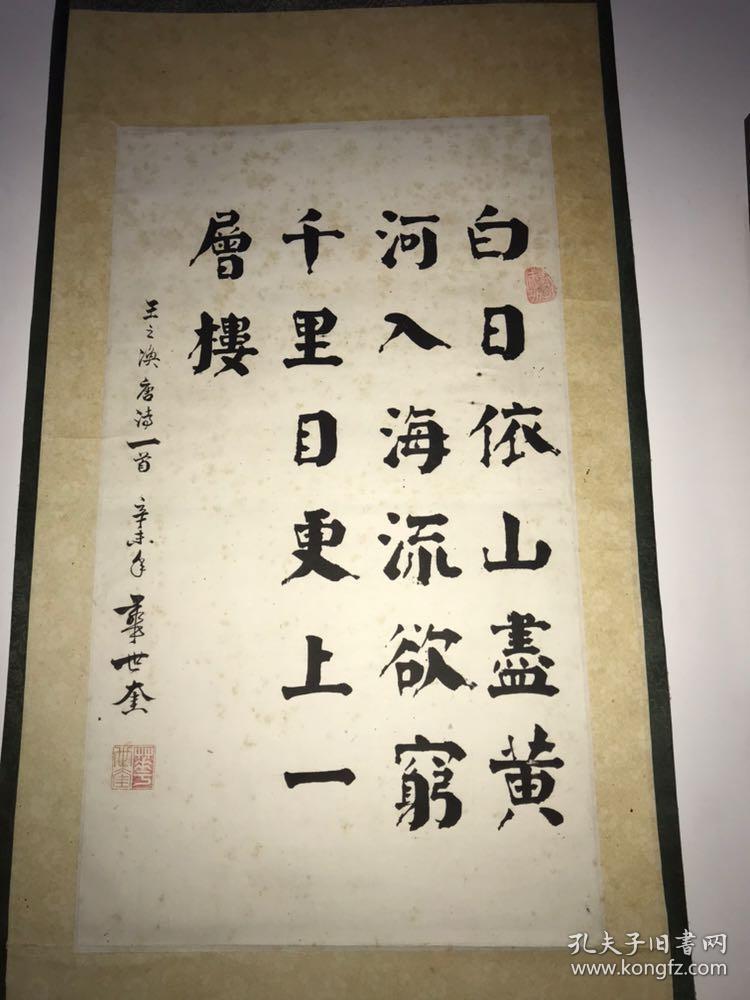 白日依山盡黄
河入海流欲窮
千里目更上一
層樓
王之渙唐诗一首 辛未年 華世奎
華世奎
孔夫子旧書网
www.kongfz.com